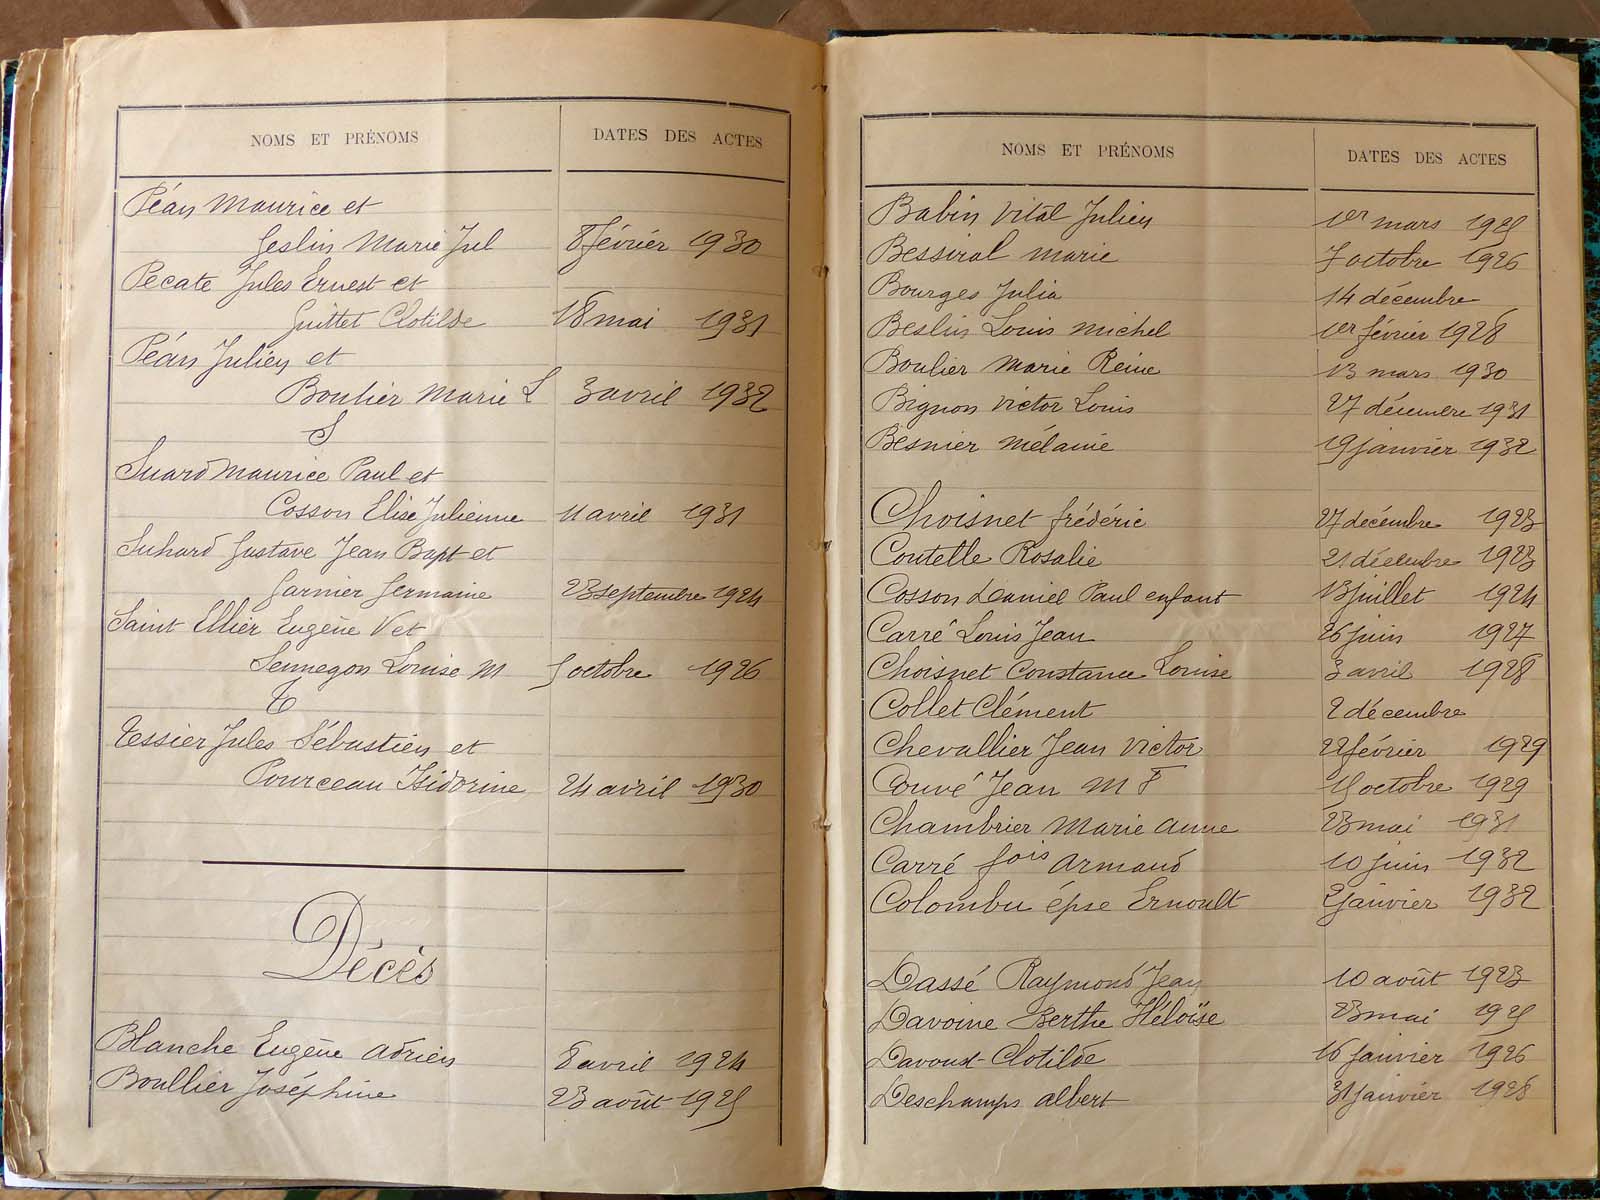 NOMS ET PRÉNOMS DATES DES ACTES
Péan Maurice et
Geslin Marie Jul 8 février 1930
Pecate Jules Ernest et
Guittet Clotilde 18 mai 1931
Péan Julien et
Boulier Marie L 3 avril 1932
S
Suard Maurice Paul et
Cosson Elise Julienne 11 avril 1931
Suhard Gustave Jean Bapt et
Garnier Germaine 23 septembre 1924
Saint Ellier Eugène V et
Sennegon Louise M 5 octobre 1926
T
Tessier Jules Sébastien et
Pourceau Isidorine 24 avril 1930
Décès
Blanche Eugène Adrien 8 avril 1924
Boullier Joséphine 23 août 1925
NOMS ET PRÉNOMS DATES DES ACTES
Babin Vital Julien 1er mars 1925
Bessiral Marie 7 octobre 1926
Bourges Julia 14 décembre
Beslin Louis Michel 1er février 1928
Boulier Marie Reine 13 mars 1930
Bignon Victor Louis 27 décembre 1931
Besnier Mélanie 19 janvier 1932
Choisnet frédéric 27 décembre 1923
Coutelle Rosalie 21 décembre 1923
Cosson Daniel Paul enfant 13 juillet 1924
Carré Louis Jean 26 juin 1927
Choisnet Constance Louise 3 avril 1928
Collet Clément 2 décembre
Chevallier Jean Victor 22 février 1929
Couvé Jean M F 15 octobre 1929
Chambrier Marie Anne 23 mai 1931
Carré fois Armand 10 juin 1932
Colombu épse Ernoult 2 janvier 1932
Dassé Raymond Jean 10 août 1923
Davoine Berthe Héloïse 23 mai 1925
Davoust Clotilde 16 janvier 1926
Deschamps Albert 31 janvier 1928